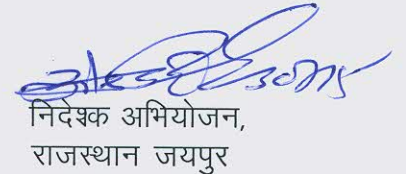 निदेश्क अभियोजन,
राजस्थान जयपुर